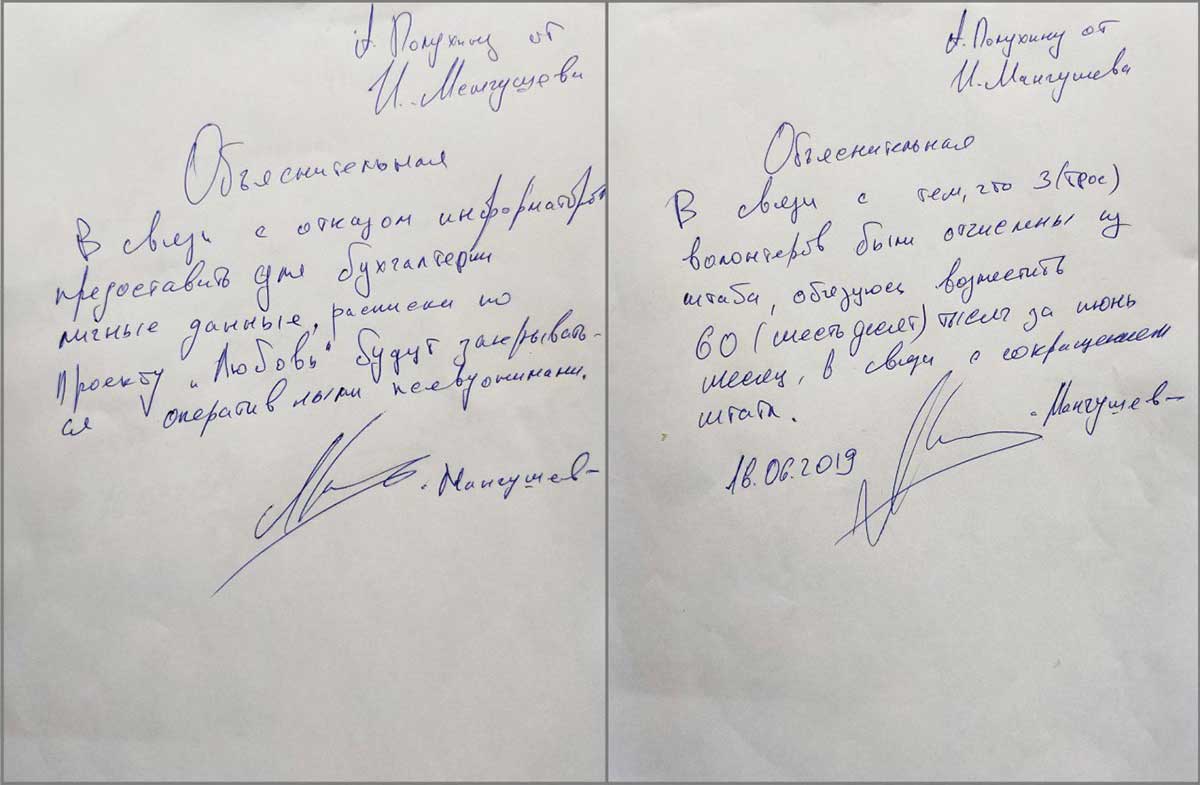 А. Полухину от
И. Мангушева
Объяснительная
В связи с отказом информаторов
предоставить для бухгалтерии
личные данные, расписки по
проекту "Любовь" будут закрывать-
ся оперативными псевдонимами.
Мангушев
А. Полухину от
И. Мангушева
Объяснительная
В связи с тем, что 3 (трое)
волонтеров были отчислены из
штаба, обязуюсь возместить
60 (шестьдесят) тысяч за июнь
месяц, в связи с сокращением
штата.
Мангушев
18.06.2019